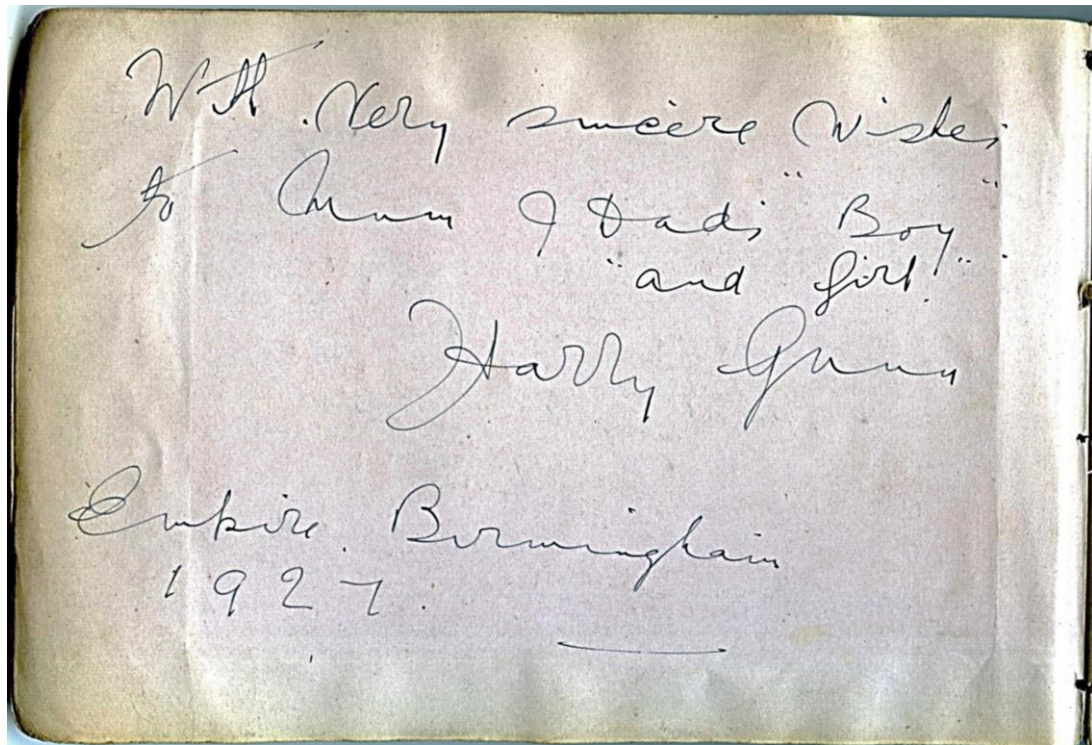 With Very sincere Wishes
to Mum & Dad's "Boy"
"and Girl".
Harry Gunn
Empire. Birmingham
1927.